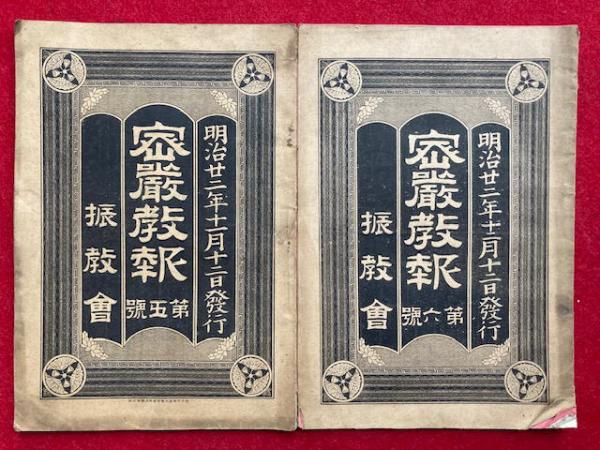 明治廿二年十一月十二日發行
密嚴教報
第五號
振教會
明治廿二年十二月十二日發行
密嚴教報
第六號
振教會